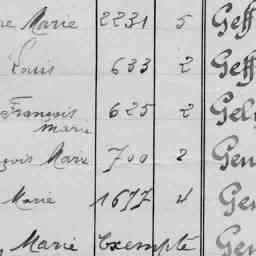 re Marie 2231 5 Geff
Louis 633 2 Geff
François 625 2 Gel
Marie
çois Marie 700 2 Gen
Marie 1677 4 Gen
Marie Exempté Gen